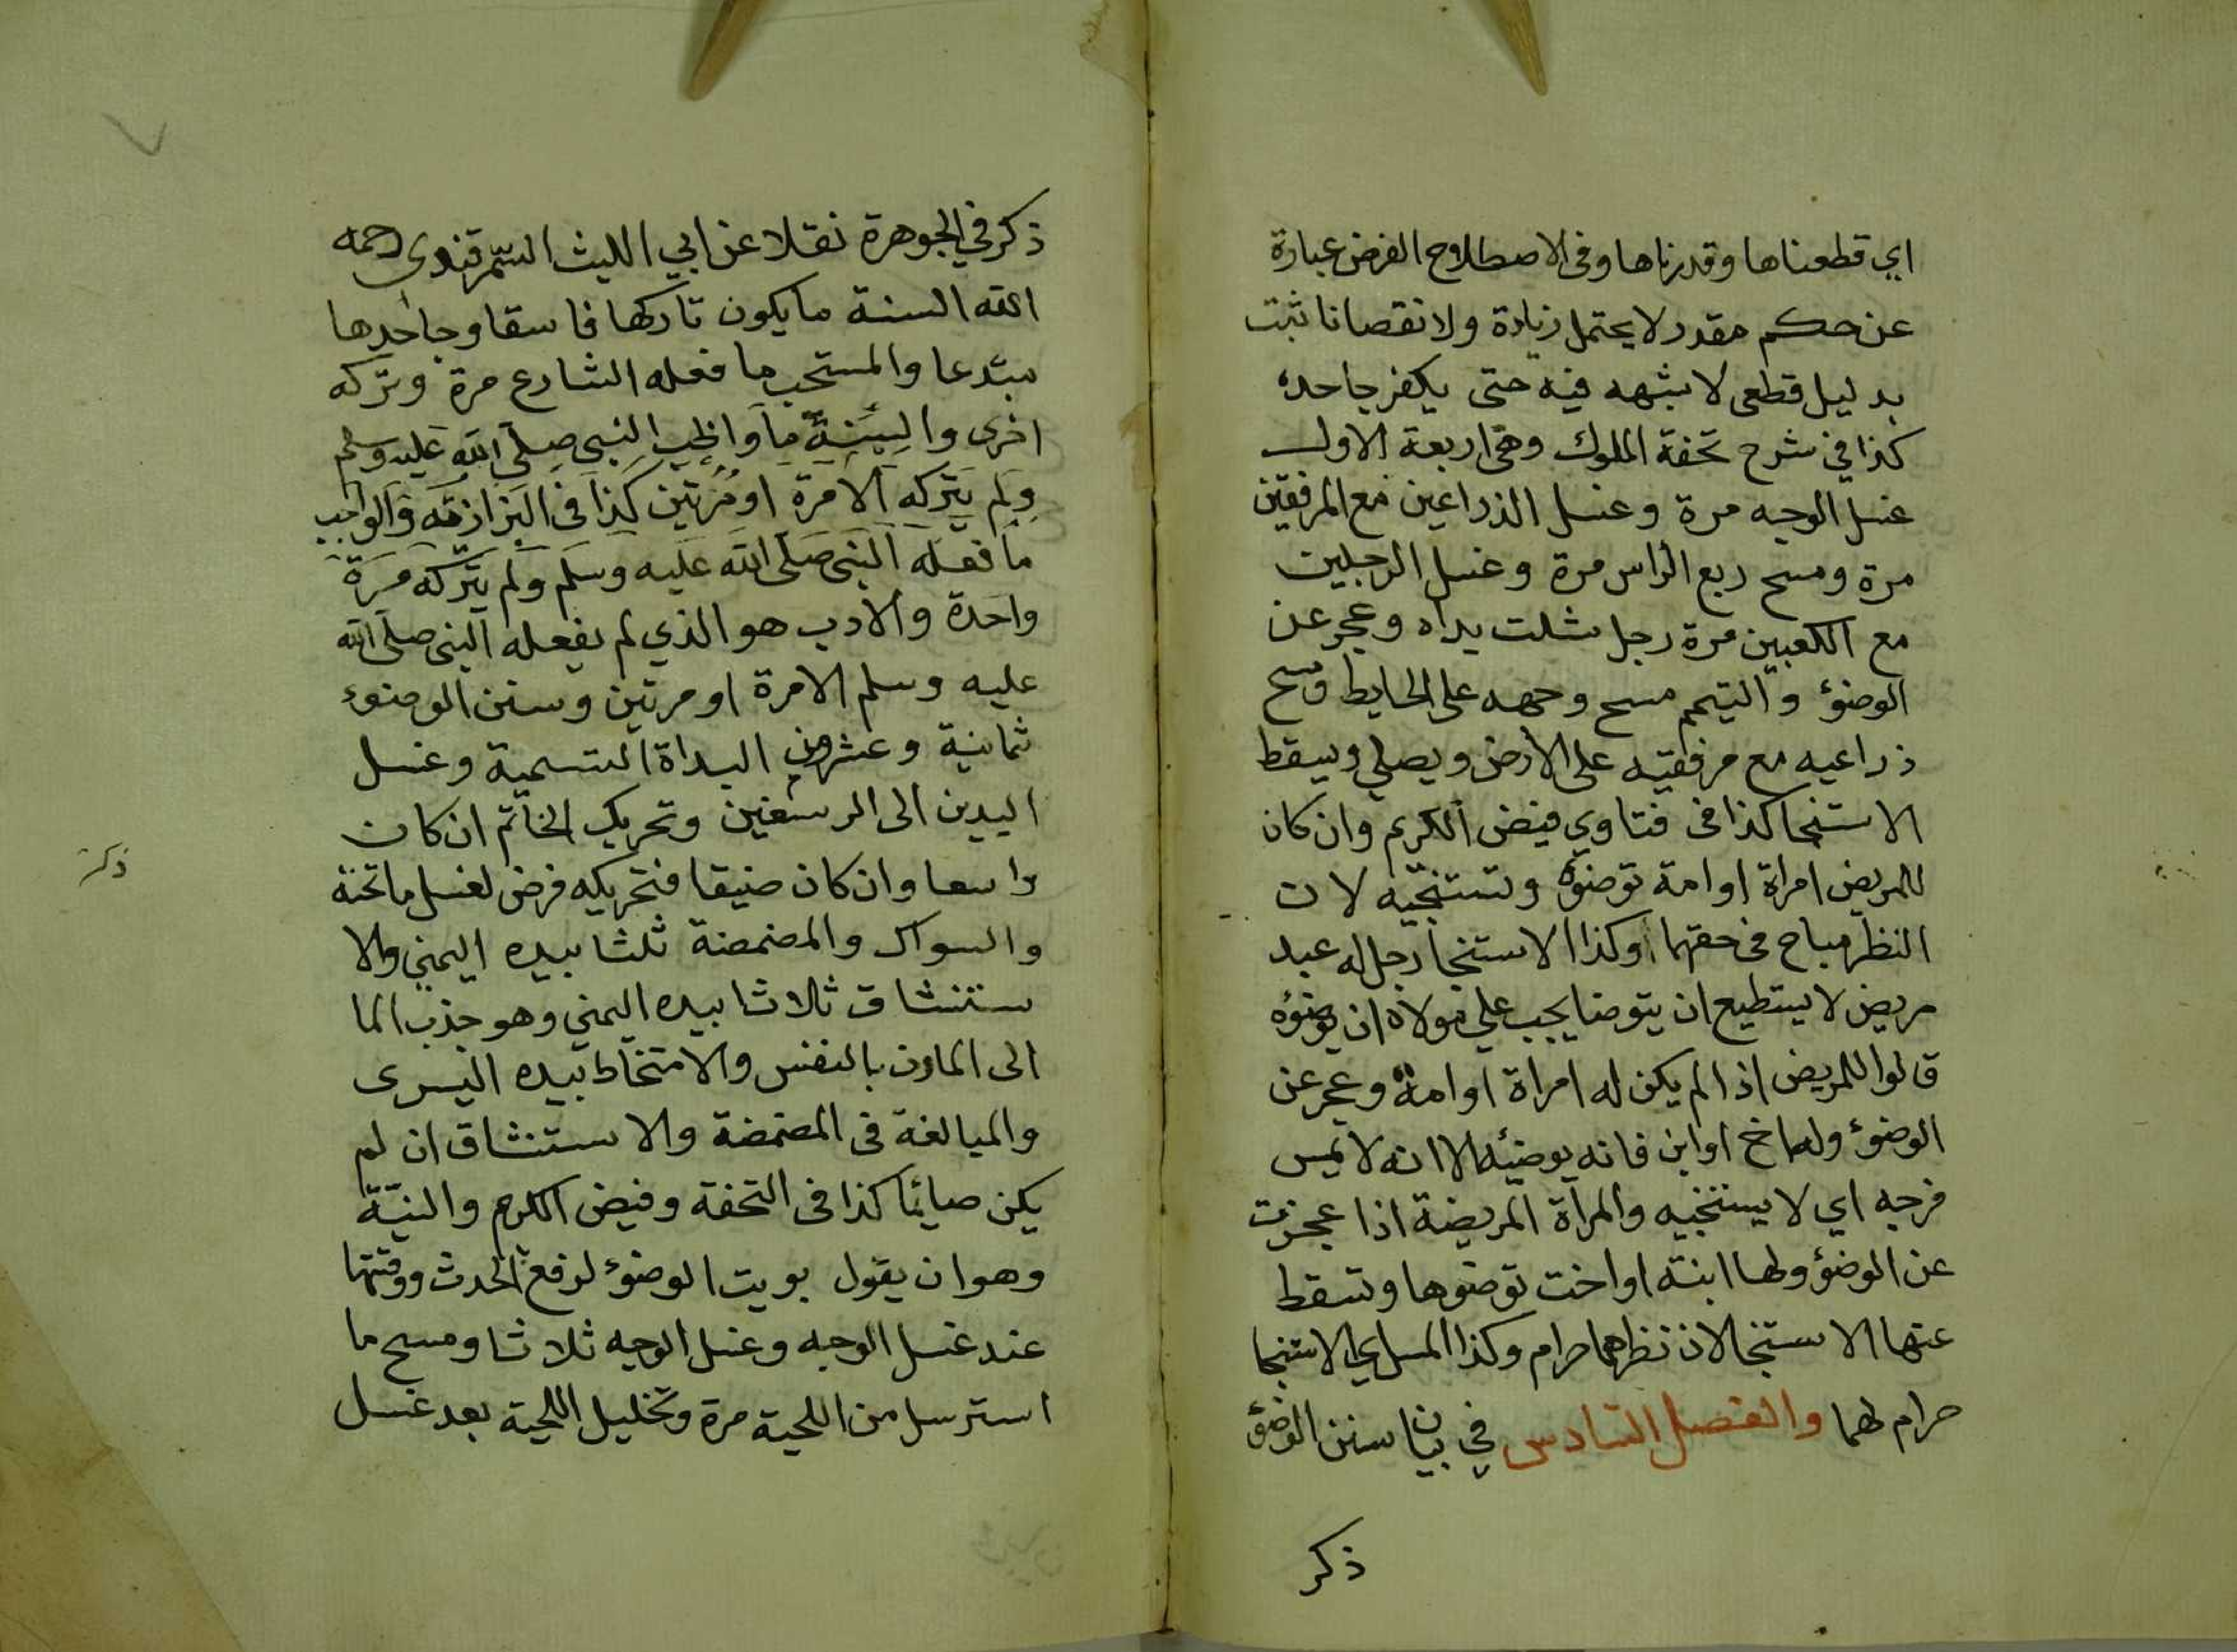 اي قطعناها وقدرناها وفى الاصطلاح الفرض عبارة
عن حكم مقدر لا يحتمل زيادة ولا نقصانا ثبت
بدليل قطعى لا شبهه فيه حتى يكفر جاحده
كذا في شرح تحفة الملوك وهي اربعة الاول
غسل الوجه مرة وغسل الذراعين مع المرفقين
مرة ومسح ربع الراس مرة وغسل الرجلين
مع الكعبين مرة رجل شلت يداه وعجز عن
الوضوء والتيمم مسح وجهه على الحايط ومسح
ذراعيه مع مرفقيه على الأرض ويصلي ويسقط
الاستنجا كذا فى فتاوي فيض الكريم وان كان
للمريض امراة او امة توضوه وتستنجيه لان
النظر مباح فى حقهما وكذا الاستنجا رجل له عبد
مريض لا يستطيع ان يتوضا يجب علي مولاه ان يوضوه
قالوا للمريض اذا لم يكن له امراة او امة وعجز عن
الوضوء وله اخ او ابن فانه يوضئه الا انه لا يمس
فرجه اي لا يستنجيه والمرأة المريضة اذا عجزت
عن الوضؤ ولها ابنة او اخت توضوها وتسقط
عنها الاستنجا لان نظرهما حرام وكذا المس اي الاستنجا
حرام لهما والفصل السادس في بيان سنن الوضؤ
ذكر
ذكر في الجوهرة نقلا عن ابي الليث السمرقندي رحمه
الله السنة ما يكون تاركها فاسقا وجاحدها
مبتدعا والمستحب ما فعله الشارع مرة وتركه
اخرى والسنة ما واظب النبي صلى الله عليه وسلم
ولم يتركه الا مرة او مرتين كذا فى البزازية والواجب
ما فعله النبي صلى الله عليه وسلم ولم يتركه مرة
واحدة والادب هو الذي لم يفعله النبى صلى الله
عليه وسلم الا مرة او مرتين وسنن الوضوء
ثمانية وعشرون البداة التسمية وغسل
اليدين الى الرسغين وتحريك الخاتم ان كان
واسعا وان كان ضيقا فتحريكه فرض لغسل ما تحته
والسواك والمضمضة ثلثا بيده اليمني والا
ستنشاق ثلاثا بيده اليمني وهو جذب الما
الى المارن بالنفس والامتخاط بيده اليسرى
والمبالغة فى المضمضة والاستنشاق ان لم
يكن صايما كذا فى التحفة وفيض الكرم والنية
وهو ان يقول نويت الوضوء لرفع الحدث ووقتها
عند غسل الوجه وغسل الوجه ثلاثا ومسح ما
استرسل من اللحية مرة وتخليل اللحية بعد غسل
ذكر